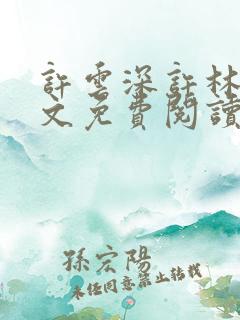 許雲深許林
文免費閱讀
孫宏陽
未经同意禁止转载